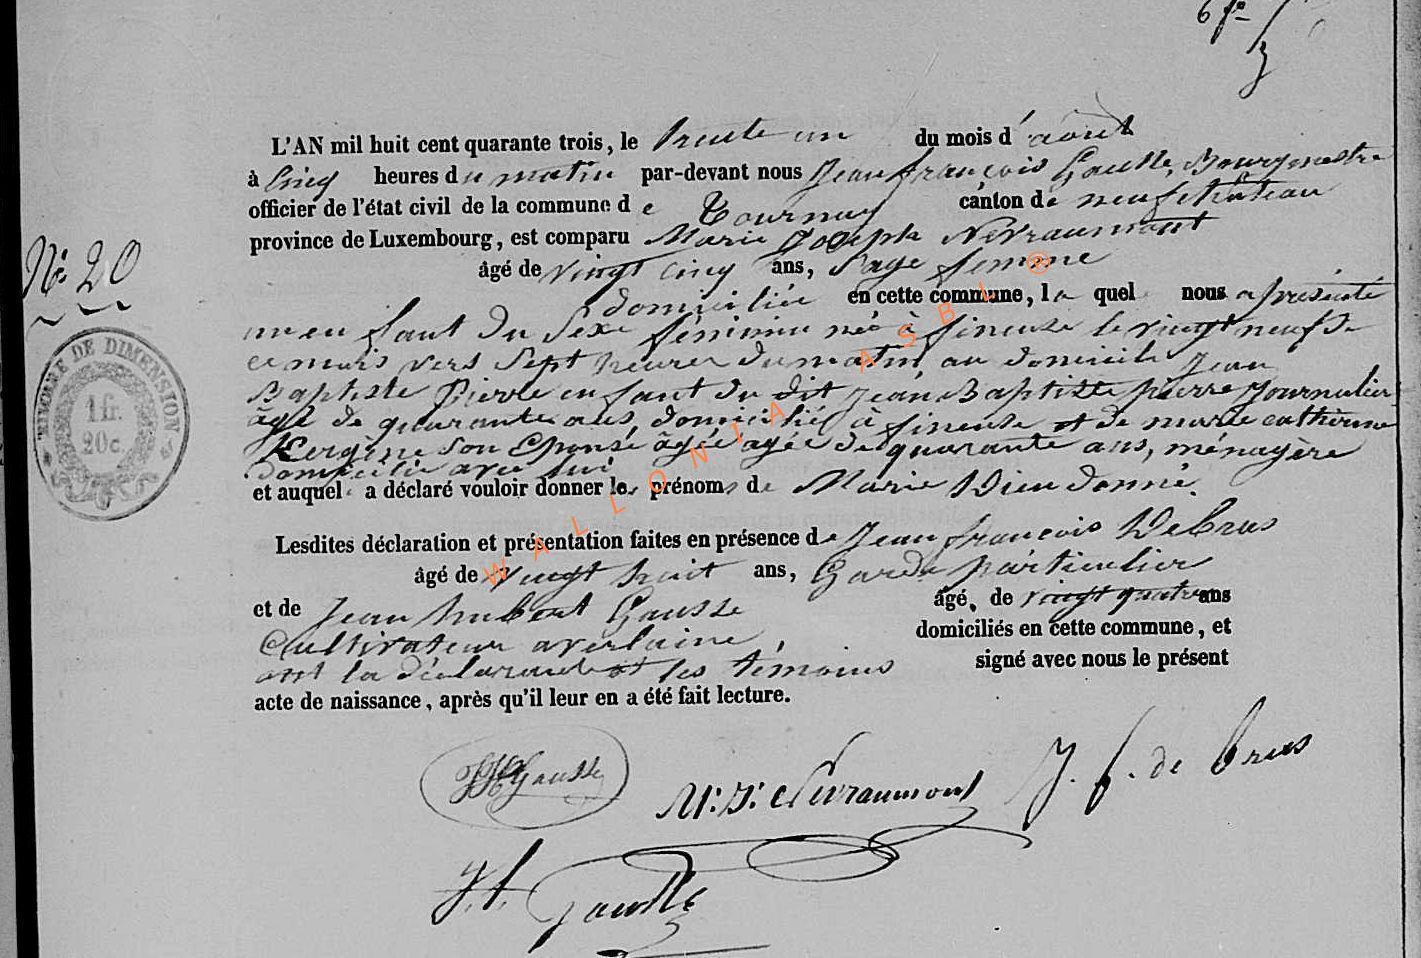 N° 20
TIMBRE DE DIMENSION
1 fr. 20c.
L'AN mil huit cent quarante trois, le trente un du mois d'août
à cinq heures du matin par-devant nous Jean françois Gausse, Bourgmestre
officier de l'état civil de la commune de Tournay canton de neufchâteau
province de Luxembourg, est comparu Marie Joseph Nevraumont
âgé de vingt cinq ans, Sage femme
domiciliée en cette commune, la quel nous a présenté
un enfant du Sexe féminin née à fineuse le vingt neuf de
ce mois vers Sept heures du matin, au domicile Jean
Baptiste Pierre enfant du dit Jean Baptiste pierre Journalier
âgé de quarante ans, domicilié à fineuse et de marie catherine
son Epouse âgée agée de quarante ans, ménagère
domiciliée avec lui
et auquel a déclaré vouloir donner les prénoms de Marie Dieudonné.
Lesdites déclaration et présentation faites en présence de Jean françois DeCrus
âgé de vingt huit ans, Garde particulier
et de Jean hubert Gausse âgé, de vingt quatre ans
Cultivateur a verlaine, domiciliés en cette commune, et
ont la déclarante et les témoins signé avec nous le présent
acte de naissance, après qu'il leur en a été fait lecture.
JH Gausse
M: J: Nevraumont
J. f. de Crus
J. f. Gausse
WALLONIA ASBL ®